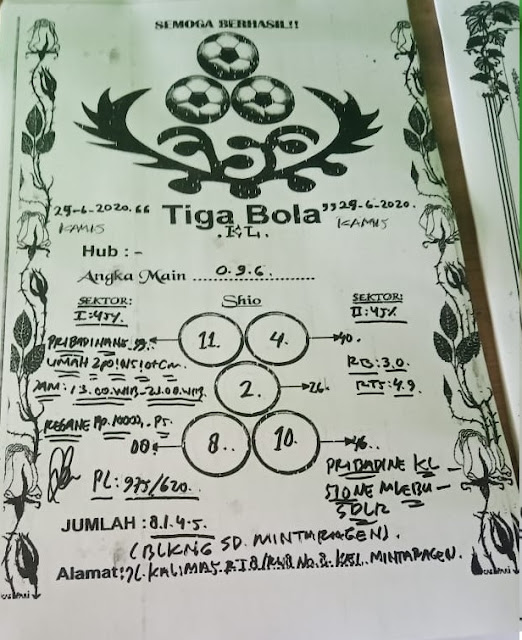 SEMOGA BERHASIL!!
25-6-2020. “ Tiga Bola ” 25-6-2020.
KAMIS .KL. KAMIS
Hub : -
Angka Main 0.9.6
SEKTOR: Shio SEKTOR:
I:45% II:45%
11. 4. 40.
RB:3.0.
2. 26.
JAM: 13.00.WIB-21.00.WIB RTS:4.9.
REGANE Rp.10000,-Ps.
00 8.. 10. 46.
PL: 975/620. PRIBADINE KL -
SIONE MLEBU -
SDLR
JUMLAH : 8.1.4.5.
(BLKNG SD. MINTARAGEN).
Alamat: JL. KALIMAS. RT 8/RW8 No.8. KEL. MINTARAGEN.